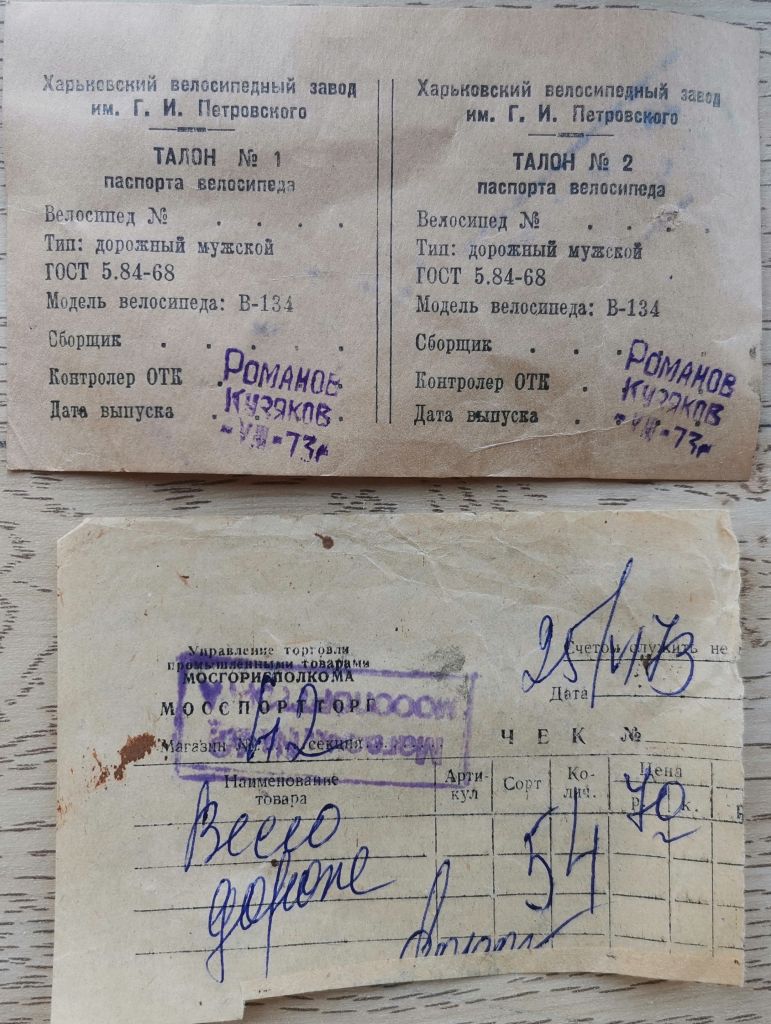 Харьковский велосипедный завод
им. Г. И. Петровского
ТАЛОН № 1
паспорта велосипеда
Велосипед № . . . .
Тип: дорожный мужской
ГОСТ 5.84-68
Модель велосипеда: В-134
Сборщик . . . . .
Контролер ОТК . РОМАНОВ
КУЗЯКОВ
Дата выпуска . -VII-73г
Харьковский велосипедный завод
им. Г. И. Петровского
ТАЛОН № 2
паспорта велосипеда
Велосипед № . . . .
Тип: дорожный мужской
ГОСТ 5.84-68
Модель велосипеда: В-134
Сборщик . . . .
Контролер ОТК . РОМАНОВ
КУЗЯКОВ
Дата выпуска . -VII-73г
Управление торговли
промышленными товарами
МОСГОРИСПОЛКОМА
МОССПОРТТОРГ
Магазин № секция
Счетом служить не
25/VII 73
Дата
ЧЕК №
Наименование товара
Арти-кул
Сорт
Ко-лич.
Цена
р. к.
70
Вело
дорож
54